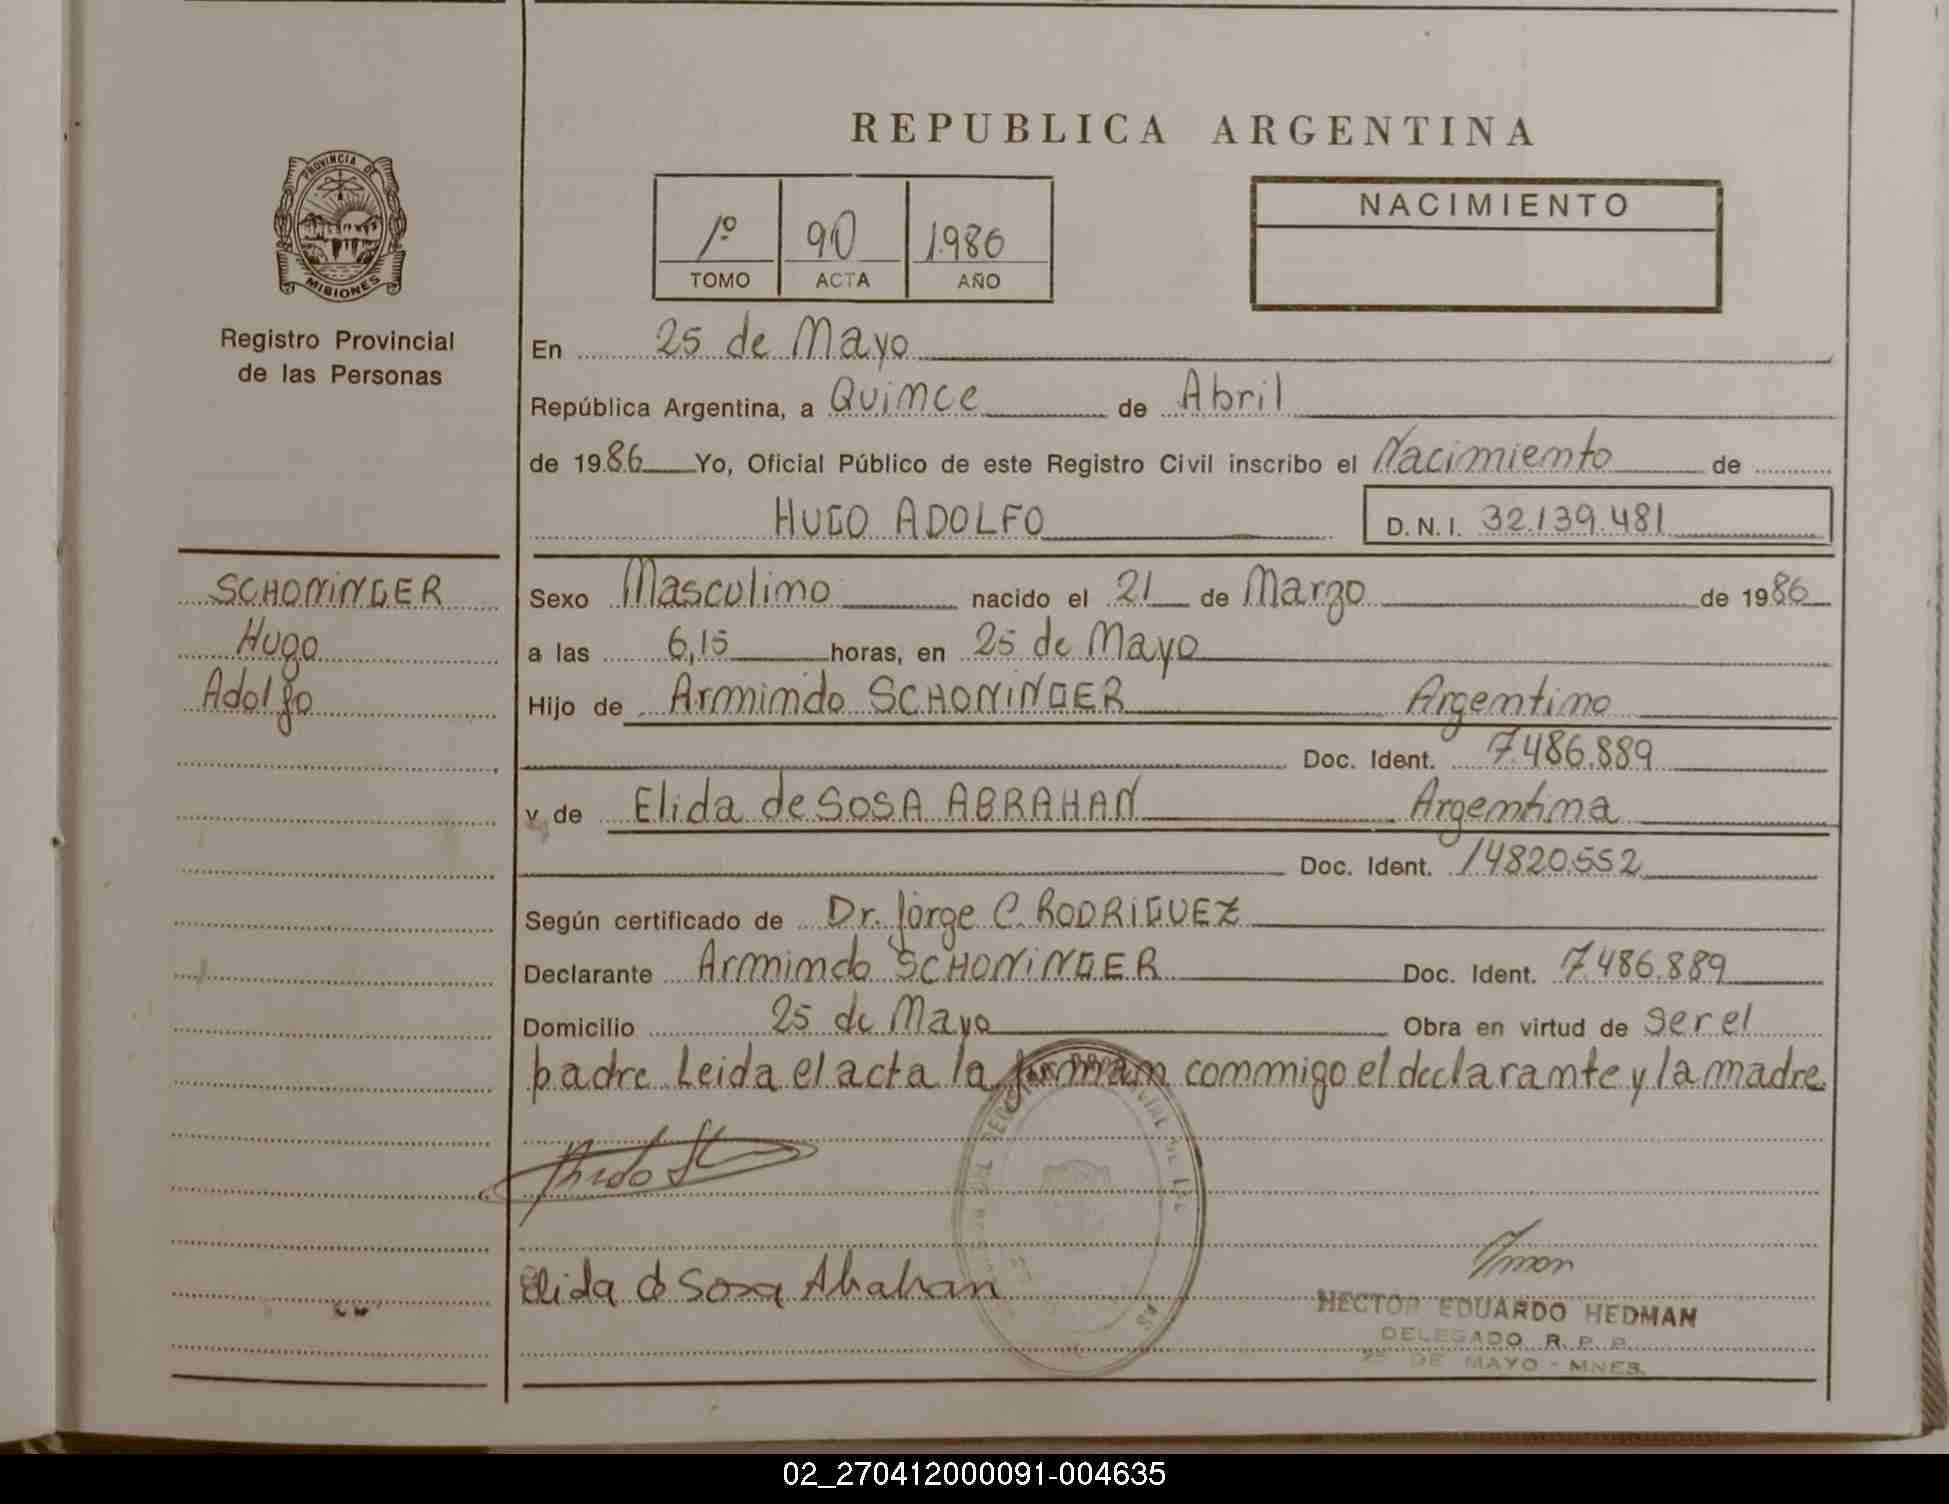 REPUBLICA ARGENTINA
PROVINCIA DE
MISIONES
Registro Provincial
de las Personas
1º 90 1986
TOMO ACTA AÑO
NACIMIENTO
En 25 de Mayo
República Argentina, a Quince de Abril
de 1986 Yo, Oficial Público de este Registro Civil inscribo el Nacimiento de
HUGO ADOLFO D.N.I. 32.139.481
SCHONINGER
Hugo
Adolfo
Sexo Masculino nacido el 21 de Marzo de 1986
a las 6,15 horas, en 25 de Mayo
Hijo de Armindo SCHONINGER Argentino
Doc. Ident. 7.486.889
y de Elida de SOSA ABRAHAN Argentina
Doc. Ident. 14820.552
Según certificado de Dr. Jorge C. RODRIGUEZ
Declarante Armindo SCHONINGER Doc. Ident. 7.486.889
Domicilio 25 de Mayo Obra en virtud de ser el
padre Leida el acta la firman conmigo el declarante y la madre
Elida d Sosa Abahan
HECTOR EDUARDO HEDMAN
DELEGADO R. P. P.
25 DE MAYO - MNES.
02_270412000091-004635